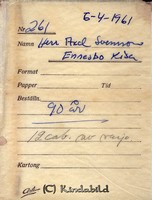 6-4-1961
No 261
Namn Herr Axel Svensson
Ennebo Kisa
Format
Papper Tid
Beställn.
90 år
12 cab. av varje
Kartong
(C) Kindabild